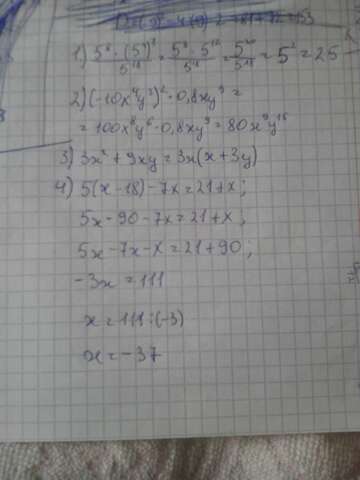 1) 5⁸ · (5⁶)² / 5¹⁸ = 5⁸ · 5¹² / 5¹⁸ = 5²⁰ / 5¹⁸ = 5² = 25
2) (-10x⁴y³)² · 0,8xy⁹ =
= 100x⁸y⁶ · 0,8xy⁹ = 80x⁹y¹⁵
3) 3x² + 9xy = 3x(x + 3y)
4) 5(x - 18) - 7x = 21 + x;
5x - 90 - 7x = 21 + x;
5x - 7x - x = 21 + 90;
-3x = 111
x = 111 : (-3)
x = -37